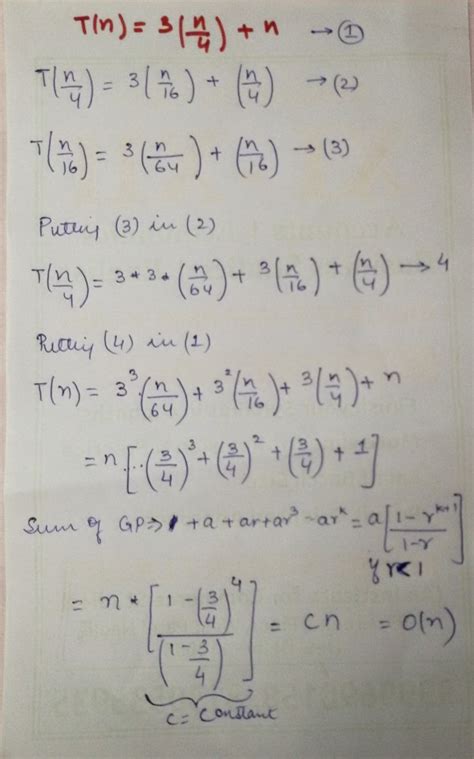 T(n) = 3(n/4) + n → ①
T(n/4) = 3(n/16) + (n/4) → (2)
T(n/16) = 3(n/64) + (n/16) → (3)
Putting (3) in (2)
T(n/4) = 3*3*(n/64) + 3(n/16) + (n/4) → 4
Putting (4) in (1)
T(n) = 3³·(n/64) + 3²(n/16) + 3(n/4) + n
= n[..(3/4)³ + (3/4)² + (3/4) + 1]
Sum of GP ⇒ + a + ar + ar³ - ar^k = a[(1 - r^(k+1))/(1-r)]
if r < 1
= n * [(1 - (3/4)⁴)/(1 - 3/4)] = cn = O(n)
c = constant